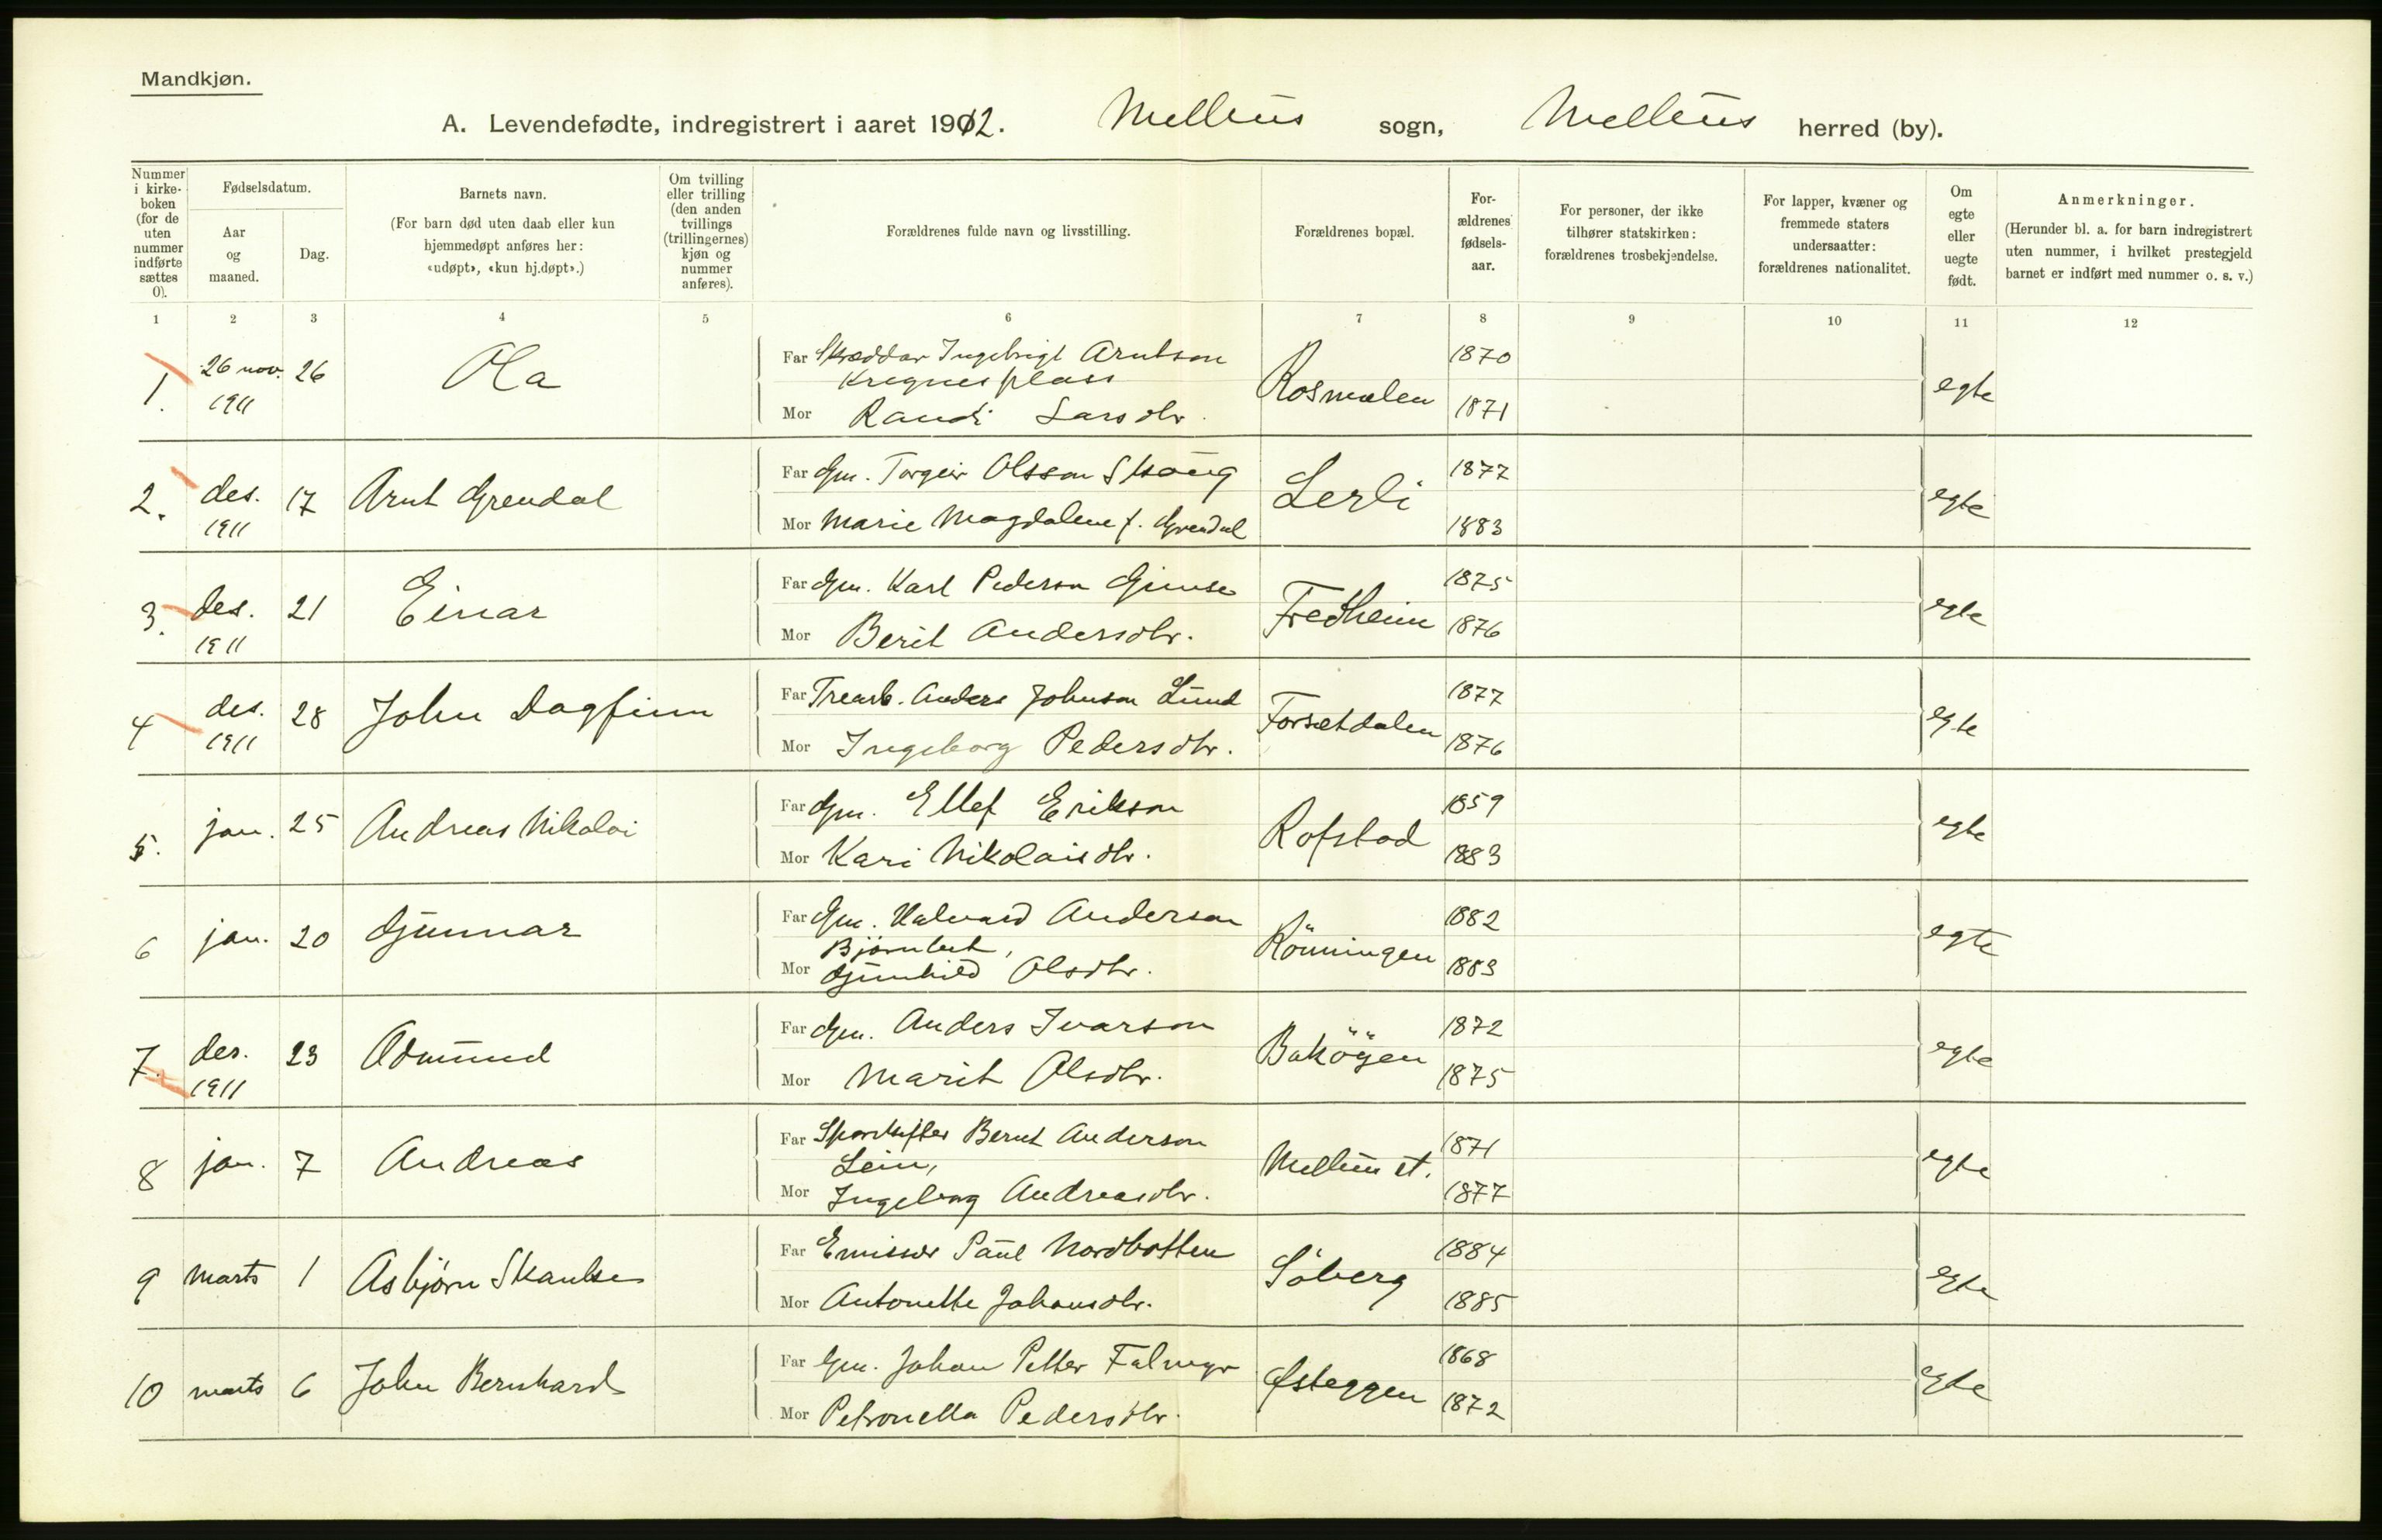 Mandkjøn.
A. Levendefødte, indregistrert i aaret 1912. Melhus sogn, Melhus herred (by).
Nummer i kirkeboken (for de uten nummer indførte sættes 0).
Fødselsdatum.
Aar og maaned.
Dag.
Barnets navn.
(For barn død uten daab eller kun hjemmedøpt anføres her: «udøpt», «kun hj.døpt».)
Om tvilling eller trilling (den anden tvillings (trillingernes) kjøn og nummer anføres).
Forældrenes fulde navn og livsstilling.
Forældrenes bopæl.
Forældrenes fødselsaar.
For personer, der ikke tilhører statskirken: forældrenes trosbekjendelse.
For lapper, kvæner og fremmede staters undersaatter: forældrenes nationalitet.
Om egte eller uegte født.
Anmerkninger.
(Herunder bl. a. for barn indregistrert uten nummer, i hvilket prestegjeld barnet er indført med nummer o. s. v.)
1 2 3 4 5 6 7 8 9 10 11 12
1. 26 nov. 1911 26 Ola
Far Skræddar Ingebrigt Arntson Kregnesplass 1870
Mor Randi Larsdtr. Rosmælen 1871 egte
2. des. 1911 17 Arnt Grendal
Far Gm. Torgeir Olsson Skaug 1877
Mor Marie Magdalene f. Grendal Lerli 1883 egte
3. des. 1911 21 Einar
Far Gm. Karl Pederson Gimse 1875
Mor Berit Andersdtr. Fredheim 1876 egte
4 des. 1911 28 John Dagfinn
Far Trearb. Anders Johnson Lund 1877
Mor Ingeborg Pedersdtr. Forsetdalen 1876 egte
5. jan. 25 Andreas Nikolai
Far Gm. Ellef Erikson 1859
Mor Kari Nikolaisdtr. Rofstad 1883 egte
6 jan. 20 Gunnar
Far Gm. Halvard Anderson Bjørnbet, 1882
Mor Gunhild Olsdtr. Rönningen 1883 egte
7. des. 1911 23 Odmund
Far Gm. Anders Ivarson 1872
Mor Marit Olsdtr. Baköyen 1875 egte
8 jan. 7 Andreas
Far Sporskifter Bernt Anderson Lein, 1871
Mor Ingeborg Andreasdtr. Melhus st. 1877 egte
9 marts 1 Asbjørn Skaulse
Far Emissær Paul Nordbotten 1884
Mor Antonette Johansdtr. Söberg 1885 egte
10 marts 6 John Bernhard
Far Gm. Johan Petter Falmyr 1868
Mor Petronella Pedersdtr. Østeggen 1872 egte